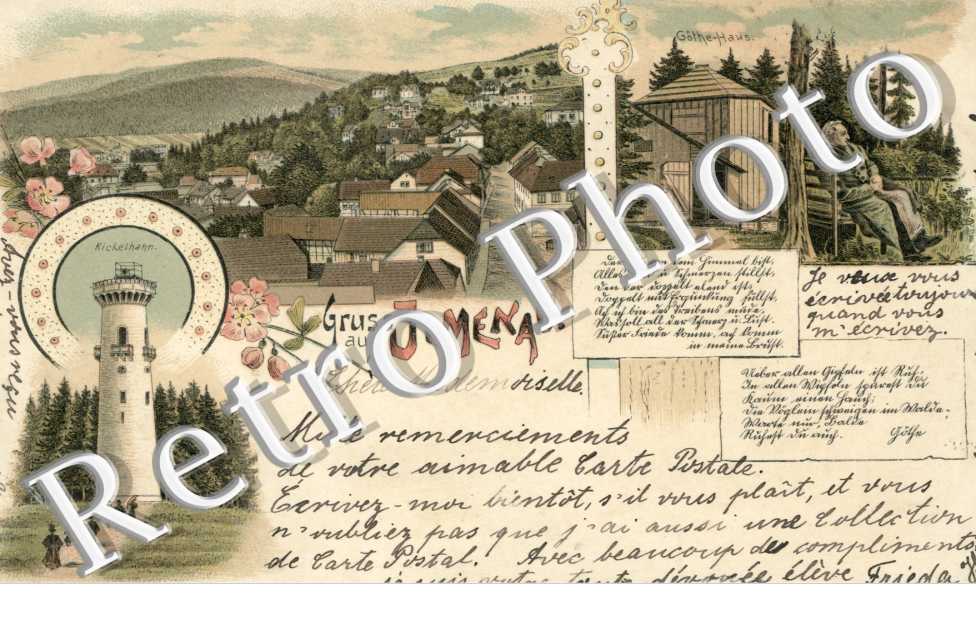 Göthe-Haus.
Kickelhahn.
Gruss
aus ILMENAU.
Der du von dem Himmel bist,
Alles Leid u. Schmerzen stillst,
Den der doppelt elend ist,
Doppelt mit Erquickung füllst,
Ach ich bin des Treibens müde,
Was soll all der Schmerz u. Lust.
Süßer Friede komm, ach komm
in meine Brust.
Je veux vous
écrivée toujours
quand vous
m'écrivez.
Ueber allen Gipfeln ist Ruh;
In allen Wipfeln spürest du
Kaum einen Hauch;
Die Vöglein schweigen im Walde.
Warte nur, Balde
Ruhest Du auch. Göthe
Chère Mademoiselle,
Mille remerciements
de votre aimable Carte Postale.
Écrivez-moi bientôt, s'il vous plaît, et vous
n'oubliez pas que j'ai aussi une Collection
de Carte Postal. Avec beaucoup de compliments
je suis votre toute dévouée élève Frieda
Avez-vous reçu
Retro Photo